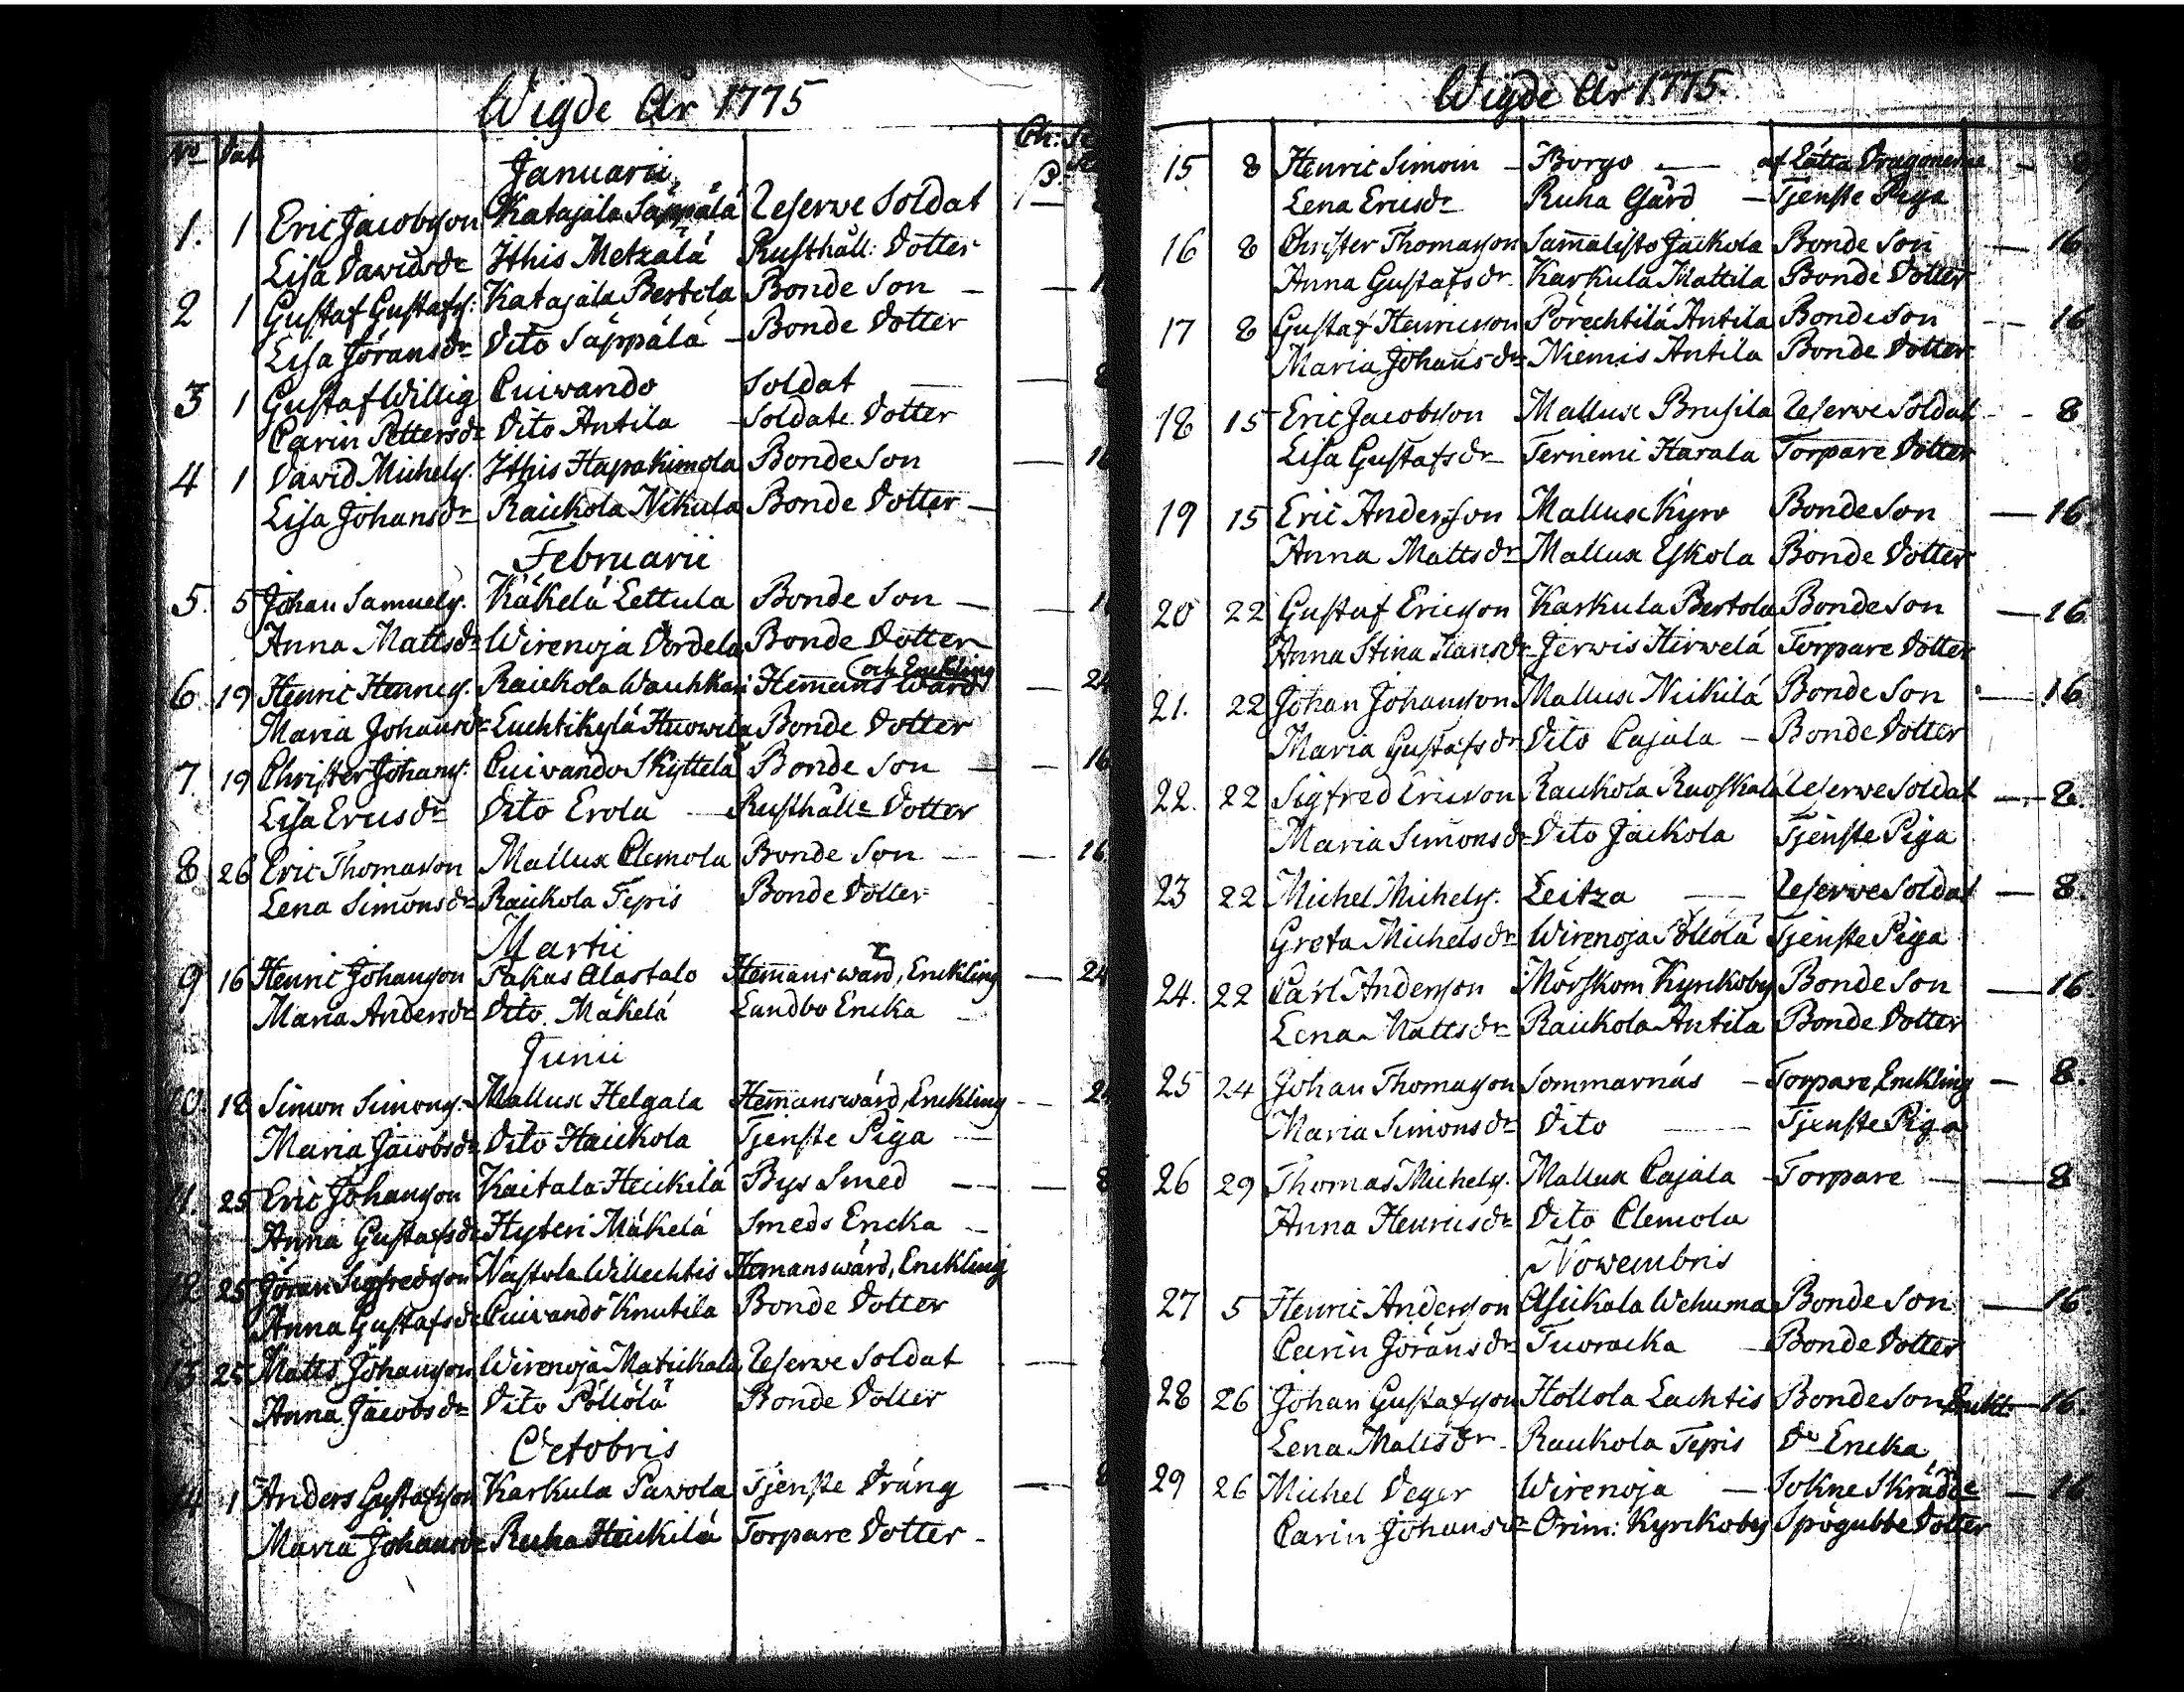 Wigde År 1775
No Dat Ch: S
Januarii
1. 1 Eric Jacobsson Katajala Säppälä Reserwe Soldat
Lisa Davidsdr Ithis Metzälä Rusthåll: Dotter
2 1 Gustaf Gustafs. Katajala Bertola Bonde Son
Lisa Jöransdr Dito Säppälä Bonde Dotter
3 1 Gustaf Willig Cuivando Soldat
Carin Pettersdr Dito Antila Soldate Dotter
4 1 David Michels. Ithis Hapakimola Bonde Son
Lisa Johansdr Raickola Nikula Bonde Dotter
Februarii
5. 5 Johan Samuels. Käkelä Lettula Bonde Son
Anna Mattsdr Wirenoja Dordela Bonde Dotter
och Enckling
6. 19 Henric Henrics. Raickola Wauhkari Hemans Ward 24
Maria Johansdr Luchtikylä Huowila Bonde Dotter
7. 19 Christer Johans. Cuivando Skyttelä Bonde Son 16
Lisa Ericsdr Dito Erola Rusthålle Dotter
8. 26 Eric Thomason Mallux Clemola Bonde Son 16
Lena Simonsdr Raickola Tepis Bonde Dotter
Martii
9 16 Henric Johansson Pakas Alastalo Hemanswärd, Enckling 24
Maria Andersdr Dito Mäkelä Landbo Encka
Junii
10. 18 Simon Simons. Mallux Helgala Hemanswärd, Enckling
Maria Jacobsdr Dito Haickola Tjenste Piga
11. 25 Eric Johansson Kaitala Heickilä Bys Smed 8
Anna Gustafsdr Hyteri Mäkelä Smeds Encka
12. 25 Jöran Sigfredsson Nastola Willechtis Hemanswärd, Enckling
Anna Gustafsdr Cuivando Knutila Bonde Dotter
13. 25 Matts Johansson Wirenoja Matickala Reserwe Soldat
Anna Jacobsdr Dito Pöllölä Bonde Dotter
Octobris
14 1 Anders Gustafsson Karkula Pawola Tjenste Dräng
Maria Johansdr Ruha Heickilä Torpare Dotter
Wigde År 1775.
15 8 Henric Simoin Borgo af Lätta Dragonerne 8
Lena Ericsdr Ruha Gård Tjenste Piga
16 8 Christer Thomasson Samalisto Jaickola Bonde Son 16
Anna Gustafsdr Karkula Mattila Bonde Dotter
17 8 Gustaf Henricsson Pörechtilä Antila Bonde Son 16
Maria Johansdr Niemis Antila Bonde Dotter
18 15 Eric Jacobsson Mallux Brusila Reserwe Soldat 8
Lisa Gustafsdr Ternemi Harala Torpare Dotter
19 15 Eric Andersson Mallux Kyro Bonde Son 16.
Anna Mattsdr Mallux Eskola Bonde Dotter
20 22 Gustaf Ericsson Karkula Bertola Bonde Son 16.
Anna Stina Hansdr Jerwis Hirwelä Torpare Dotter
21. 22 Johan Johansson Mallux Nickilä Bonde Son 16
Maria Gustafsdr Dito Cajala Bonde Dotter
22. 22 Sigfred Ericsson Raickola Ruoskala Reserwe Soldat 8.
Maria Simonsdr Dito Jaickola Tjenste Piga
23 22 Michel Michels. Leitza Reserwe Soldat 8.
Greta Michelsdr Wirenoja Pöllölä Tjenste Piga
24. 22 Carl Andersson Mörskom Kyrckoby Bonde Son 16.
Lena Mattsdr Raickola Antila Bonde Dotter
25 24 Johan Thomasson Sommarnäs Torpare, Enckling 8.
Maria Simonsdr Dito Tjenste Piga
26 29 Thomas Michels. Mallux Cajala Torpare 8
Anna Henricsdr Dito Clemola
Nowembris
27 5 Henric Andersson Asickala Wehuma Bonde Son 16.
Carin Jöransdr Tuoracka Bonde Dotter
28 26 Johan Gustafsson Hollola Lachtis Bonde Son Enckl. 16.
Lena Mattsdr Raickola Tepis Do Encka
29 26 Michel Deger Wirenoja Sokne Skrädde 16
Carin Johansdr Orim: Kyrckoby Spögubbe Dotter